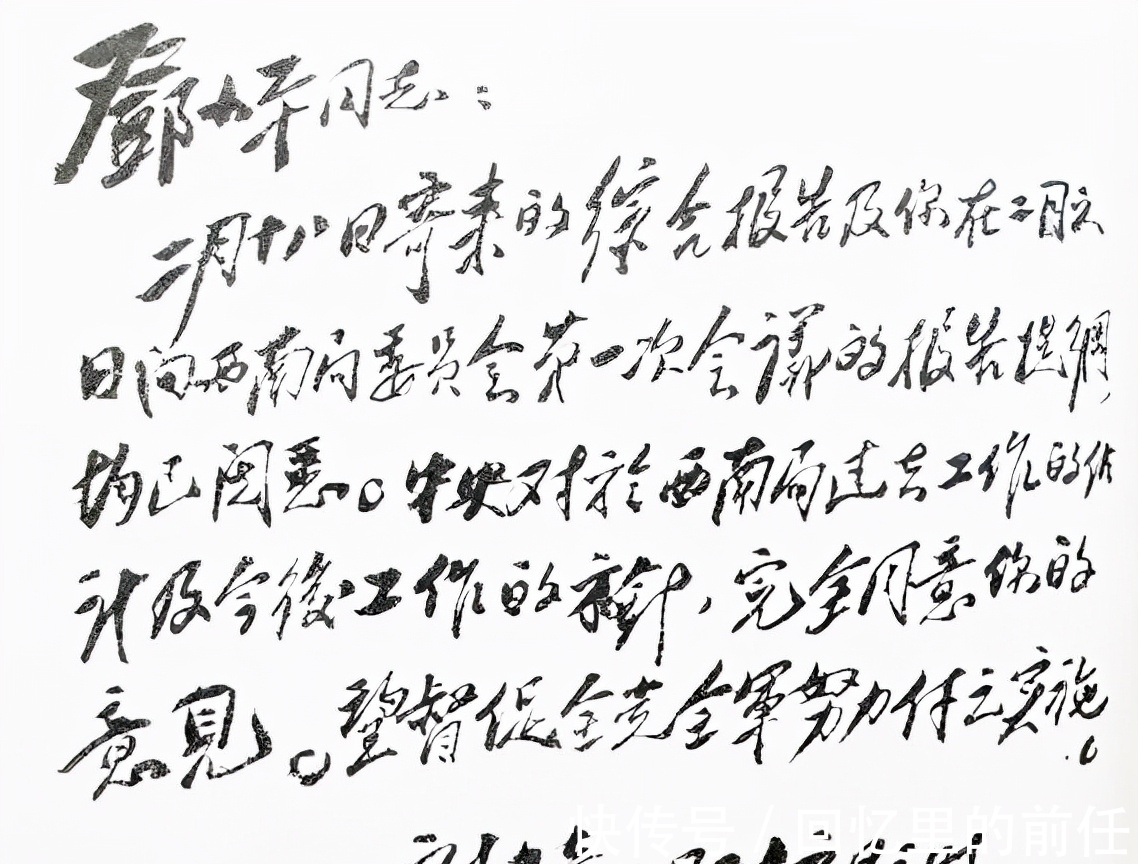 鄧小平同志：
二月十八日寄来的综合报告及你在二月六
日向西南局委員会第一次会議的报告提綱
均已閱悉。中央对於西南局过去工作的估
计及今後工作的方針，完全同意你的
意見。望督促全党全軍努力付之实施。
快传号 / 回忆里的前任